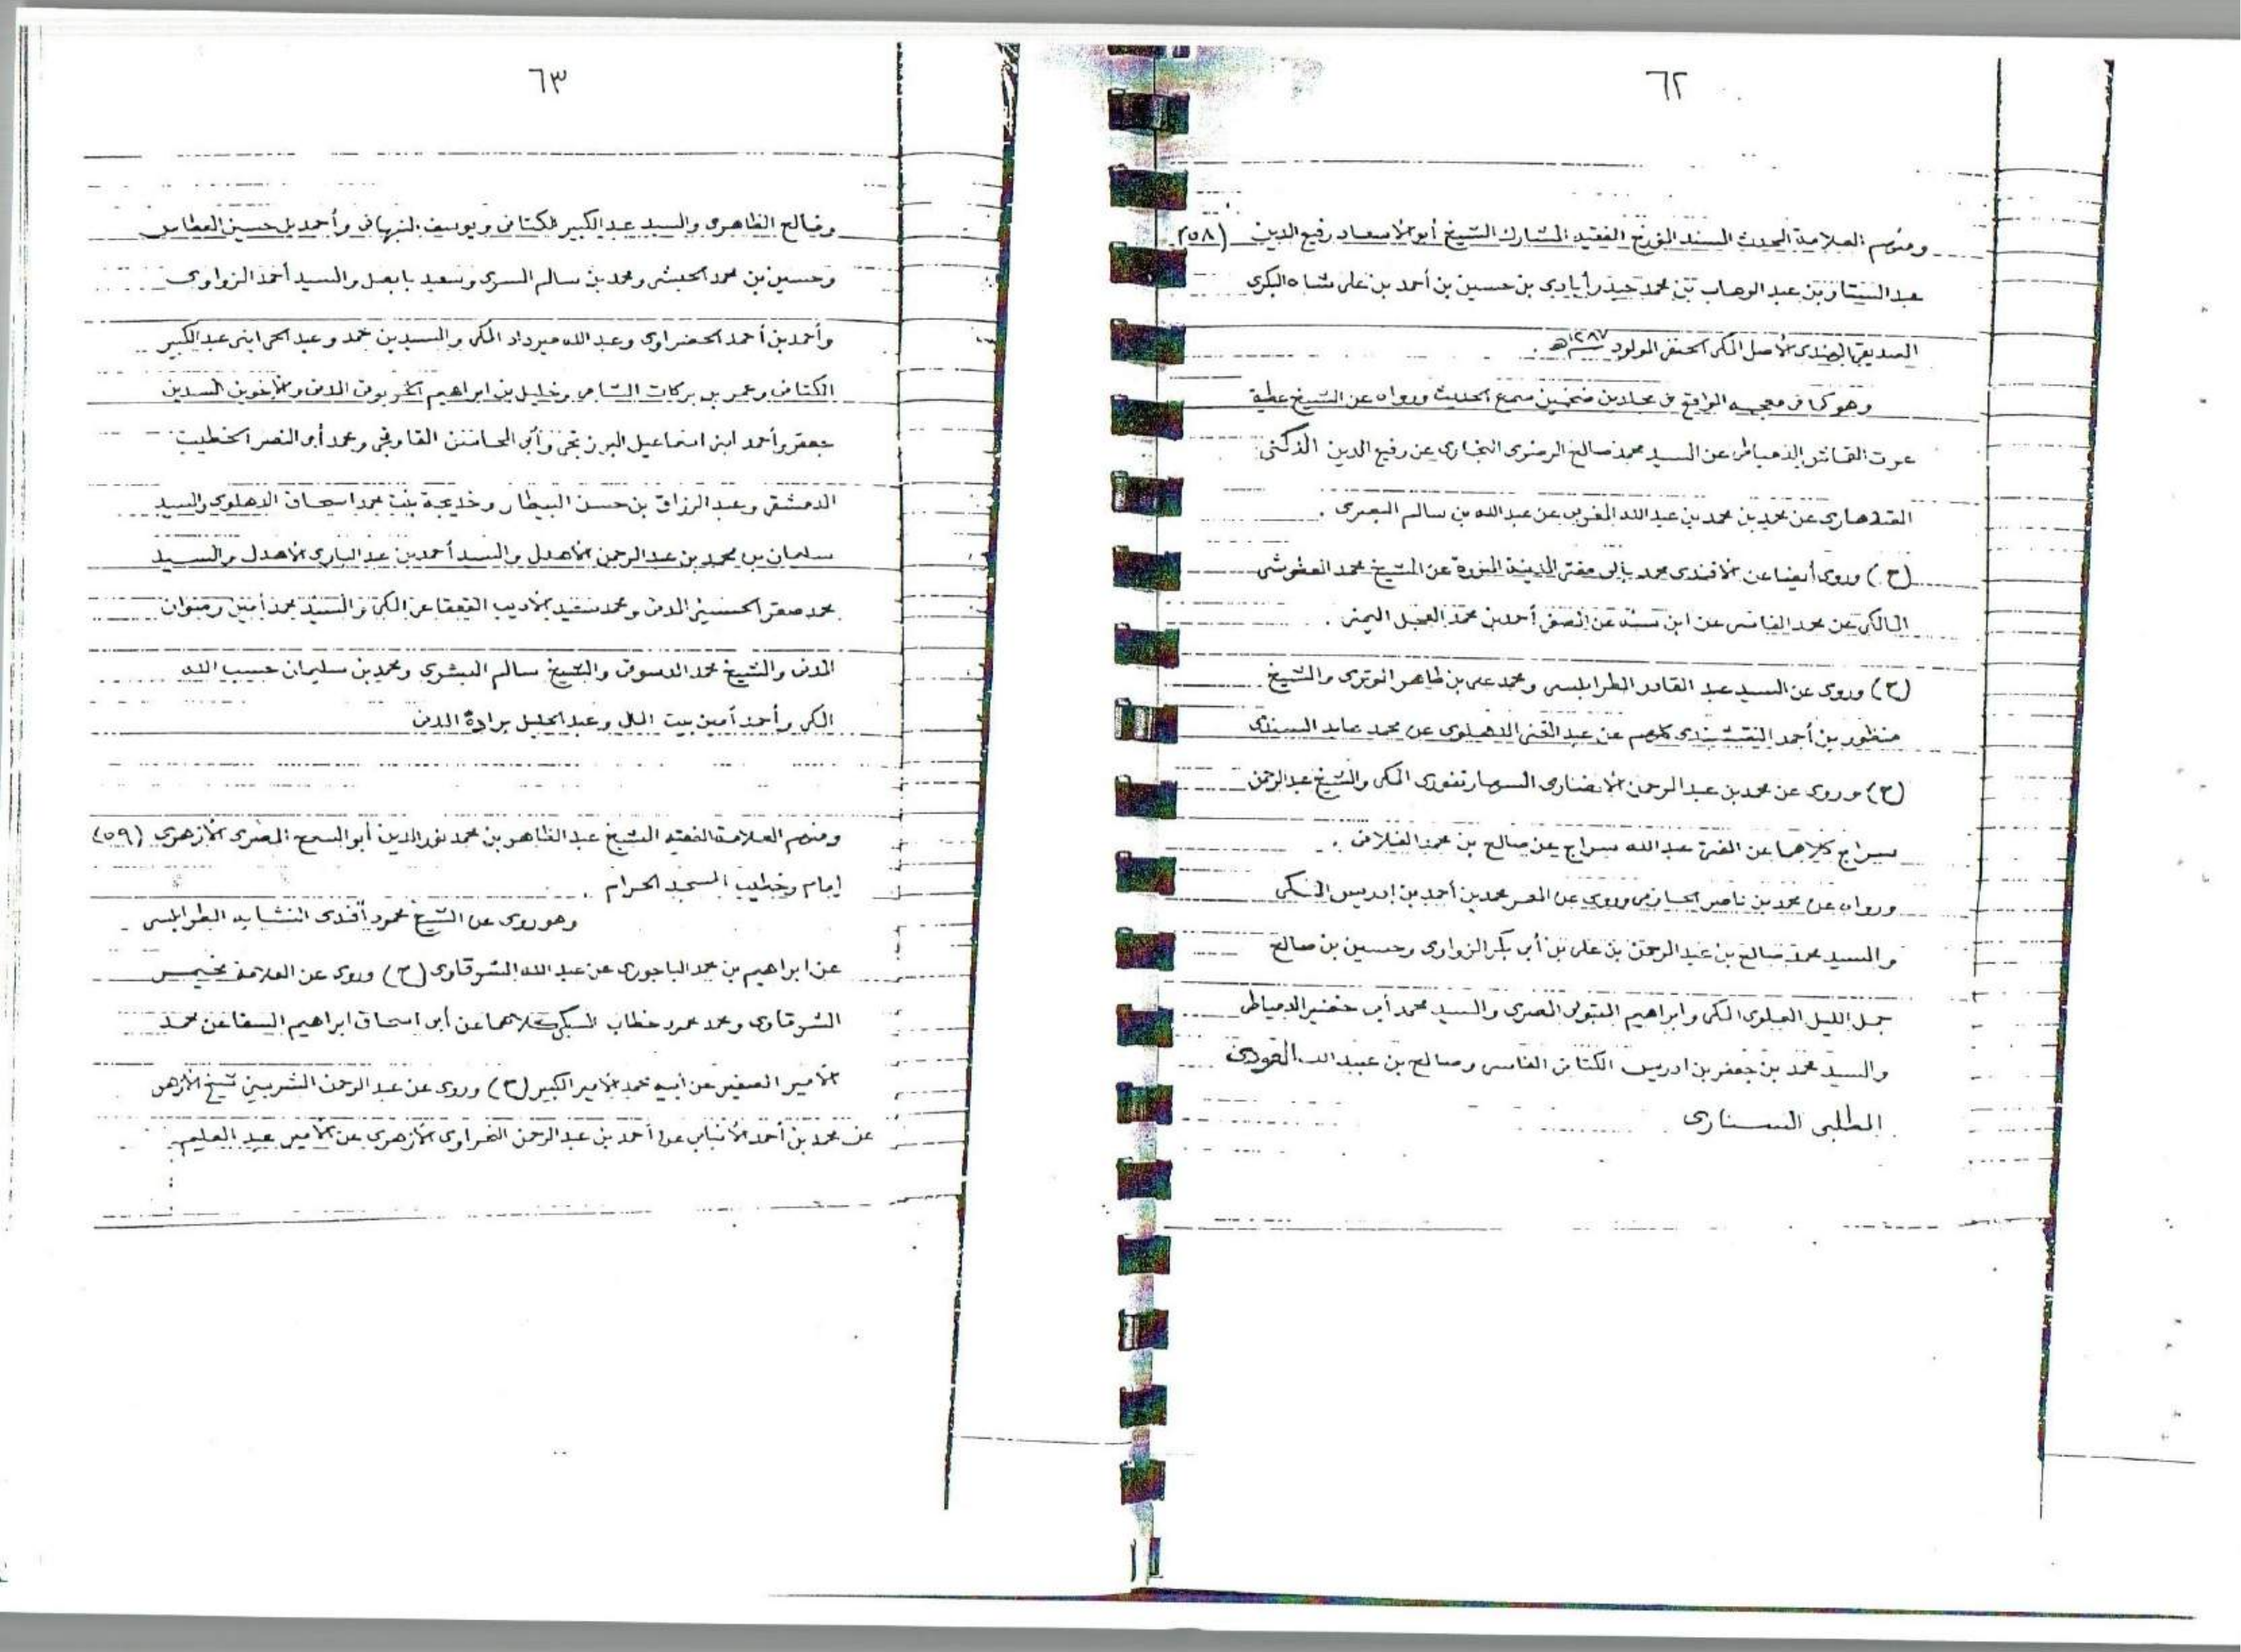 ٦٢
ومنهم العلامة المحدث المسند المؤرخ الفقيه المشارك الشيخ أبو الاسعاد رفيع الدين (٥٨)
عبد الستار بن عبد الوهاب بن محمد حيدرأبادي بن حسين بن أحمد بن على شاه البكرى
الصديقى الهندى الأصل المكى الحنفى المولود ١٢٨٧هـ .
وهو كما فى معجمه الواقع فى مجلدين ضخمين سمع الحديث ورواه عن الشيخ عطية
عرت القاش الدمياطى عن السيد محمد صالح الرضوى البخارى عن رفيع الدين الدكنى
القندهارى عن محمد بن محمد بن عبد الله المغربى عن عبد الله بن سالم البصرى .
(ح) وروى أيضا عن الافندى محمد بالى مفتى المدينة المنورة عن الشيخ محمد العطوشى
المالكى عن محمد الفاسى عن ابن سنة عن الصفى أحمد بن محمد العجل اليمنى .
(ح) وروى عن السيد عبد القادر الطرابلسى ومحمد على بن ظاهر الوترى والشيخ
منظور بن أحمد النقشبندى كلهم عن عبد الغنى الدهلوى عن محمد عابد السندى
(ح) وروى عن محمد بن عبد الرحمن الانصارى السهارنفورى المكى والشيخ عبد الرحمن
سراج كلاهما عن المفتى عبد الله سراج عن صالح بن محمد الفلانى .
ورواه عن محمد بن ناصر الحازمى وروى عن المعمر محمد بن أحمد بن إدريس المكى
والسيد محمد صالح بن عبد الرحمن بن على بن أبى بكر الزواوى وحسين بن صالح
جمل الليل العلوى المكى وابراهيم المتبولى المصرى والسيد محمد أبى خضير الدمياطى
والسيد محمد بن جعفر بن ادريس الكتانى الفاسى وصالح بن عبد الله العودى
المطلبى السنارى
٦٣
وفالح الظاهرى والسيد عبد الكبير الكتانى ويوسف النبهانى وأحمد بن حسين العطاس
وحسين بن محمد الحبشى ومحمد بن سالم السرى وسعيد بابصل والسيد أحمد الزواوى
وأحمد بن أحمد الحضراوى وعبد الله ميرداد المكى والسيدين محمد وعبد الحى ابنى عبد الكبير
الكتانى وعمر بن بركات الشامى وخليل بن ابراهيم الخربوتى المدنى والاخوين السيدين
جعفر وأحمد ابنى اسماعيل البرزنجى وأبى المحاسن القاوقجى ومحمد أبى النصر الخطيب
الدمشقى وعبد الرزاق بن حسن البيطار وخديجة بنت محمد اسحاق الدهلوى والسيد
سليمان بن محمد بن عبد الرحمن الأهدل والسيد أحمد بن عبد البارى الأهدل والسيد
محمد صقر الحسينى المدنى ومحمد سعيد الأديب القعقاعى المكى والسيد محمد أمين رضوان
المدنى والشيخ محمد الدسوقى والشيخ سالم البشرى ومحمد بن سليمان حسب الله
المكى وأحمد أمين بيت المال وعبد الجليل برادة المدنى
ومنهم العلامة الفقيه الشيخ عبد الظاهر بن محمد نور الدين أبو السمح المصرى الأزهرى (٥٩)
إمام وخطيب المسجد الحرام .
وهو روى عن الشيخ محمود أفندى النشابه الطرابلسى
عن ابراهيم بن محمد الباجورى عن عبد الله الشرقاوى (ح) وروى عن العلامة
الشرقاوى ومحمد محمود خطاب السبكى كلاهما عن أبى اسحاق ابراهيم السقا عن محمد
الأمير الصغير عن أبيه محمد الأمير الكبير (ح) وروى عن عبد الرحمن الشربينى شيخ الأزهر
عن محمد بن أحمد الأنبابى عن أحمد بن عبد الرحمن النحراوى الأزهرى عن الأمير عبد العليم